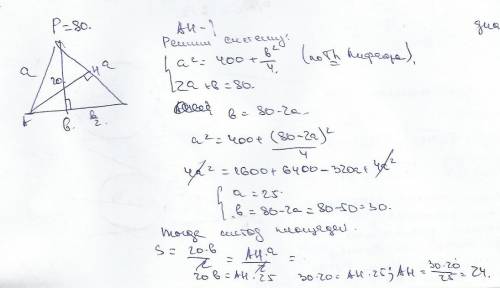 P=80.
АН-?
диа
Решим систему:
a² = 400 + b²/4. (по Th Пифагора).
2a + b = 80.
a
20
H
a
A
b.
b/2.
b = 80-2a.
a² = 400 + (80-2a)²/4
4a² = 1600 + 6400 - 320a + 4a²
a = 25.
b = 80-2a = 80-50 = 30.
Тогда метод площадей.
S = 20·b/2 = AH·a/2 =
20b = AH·25 30·20 = AH·25; AH = 30·20/25 = 24.